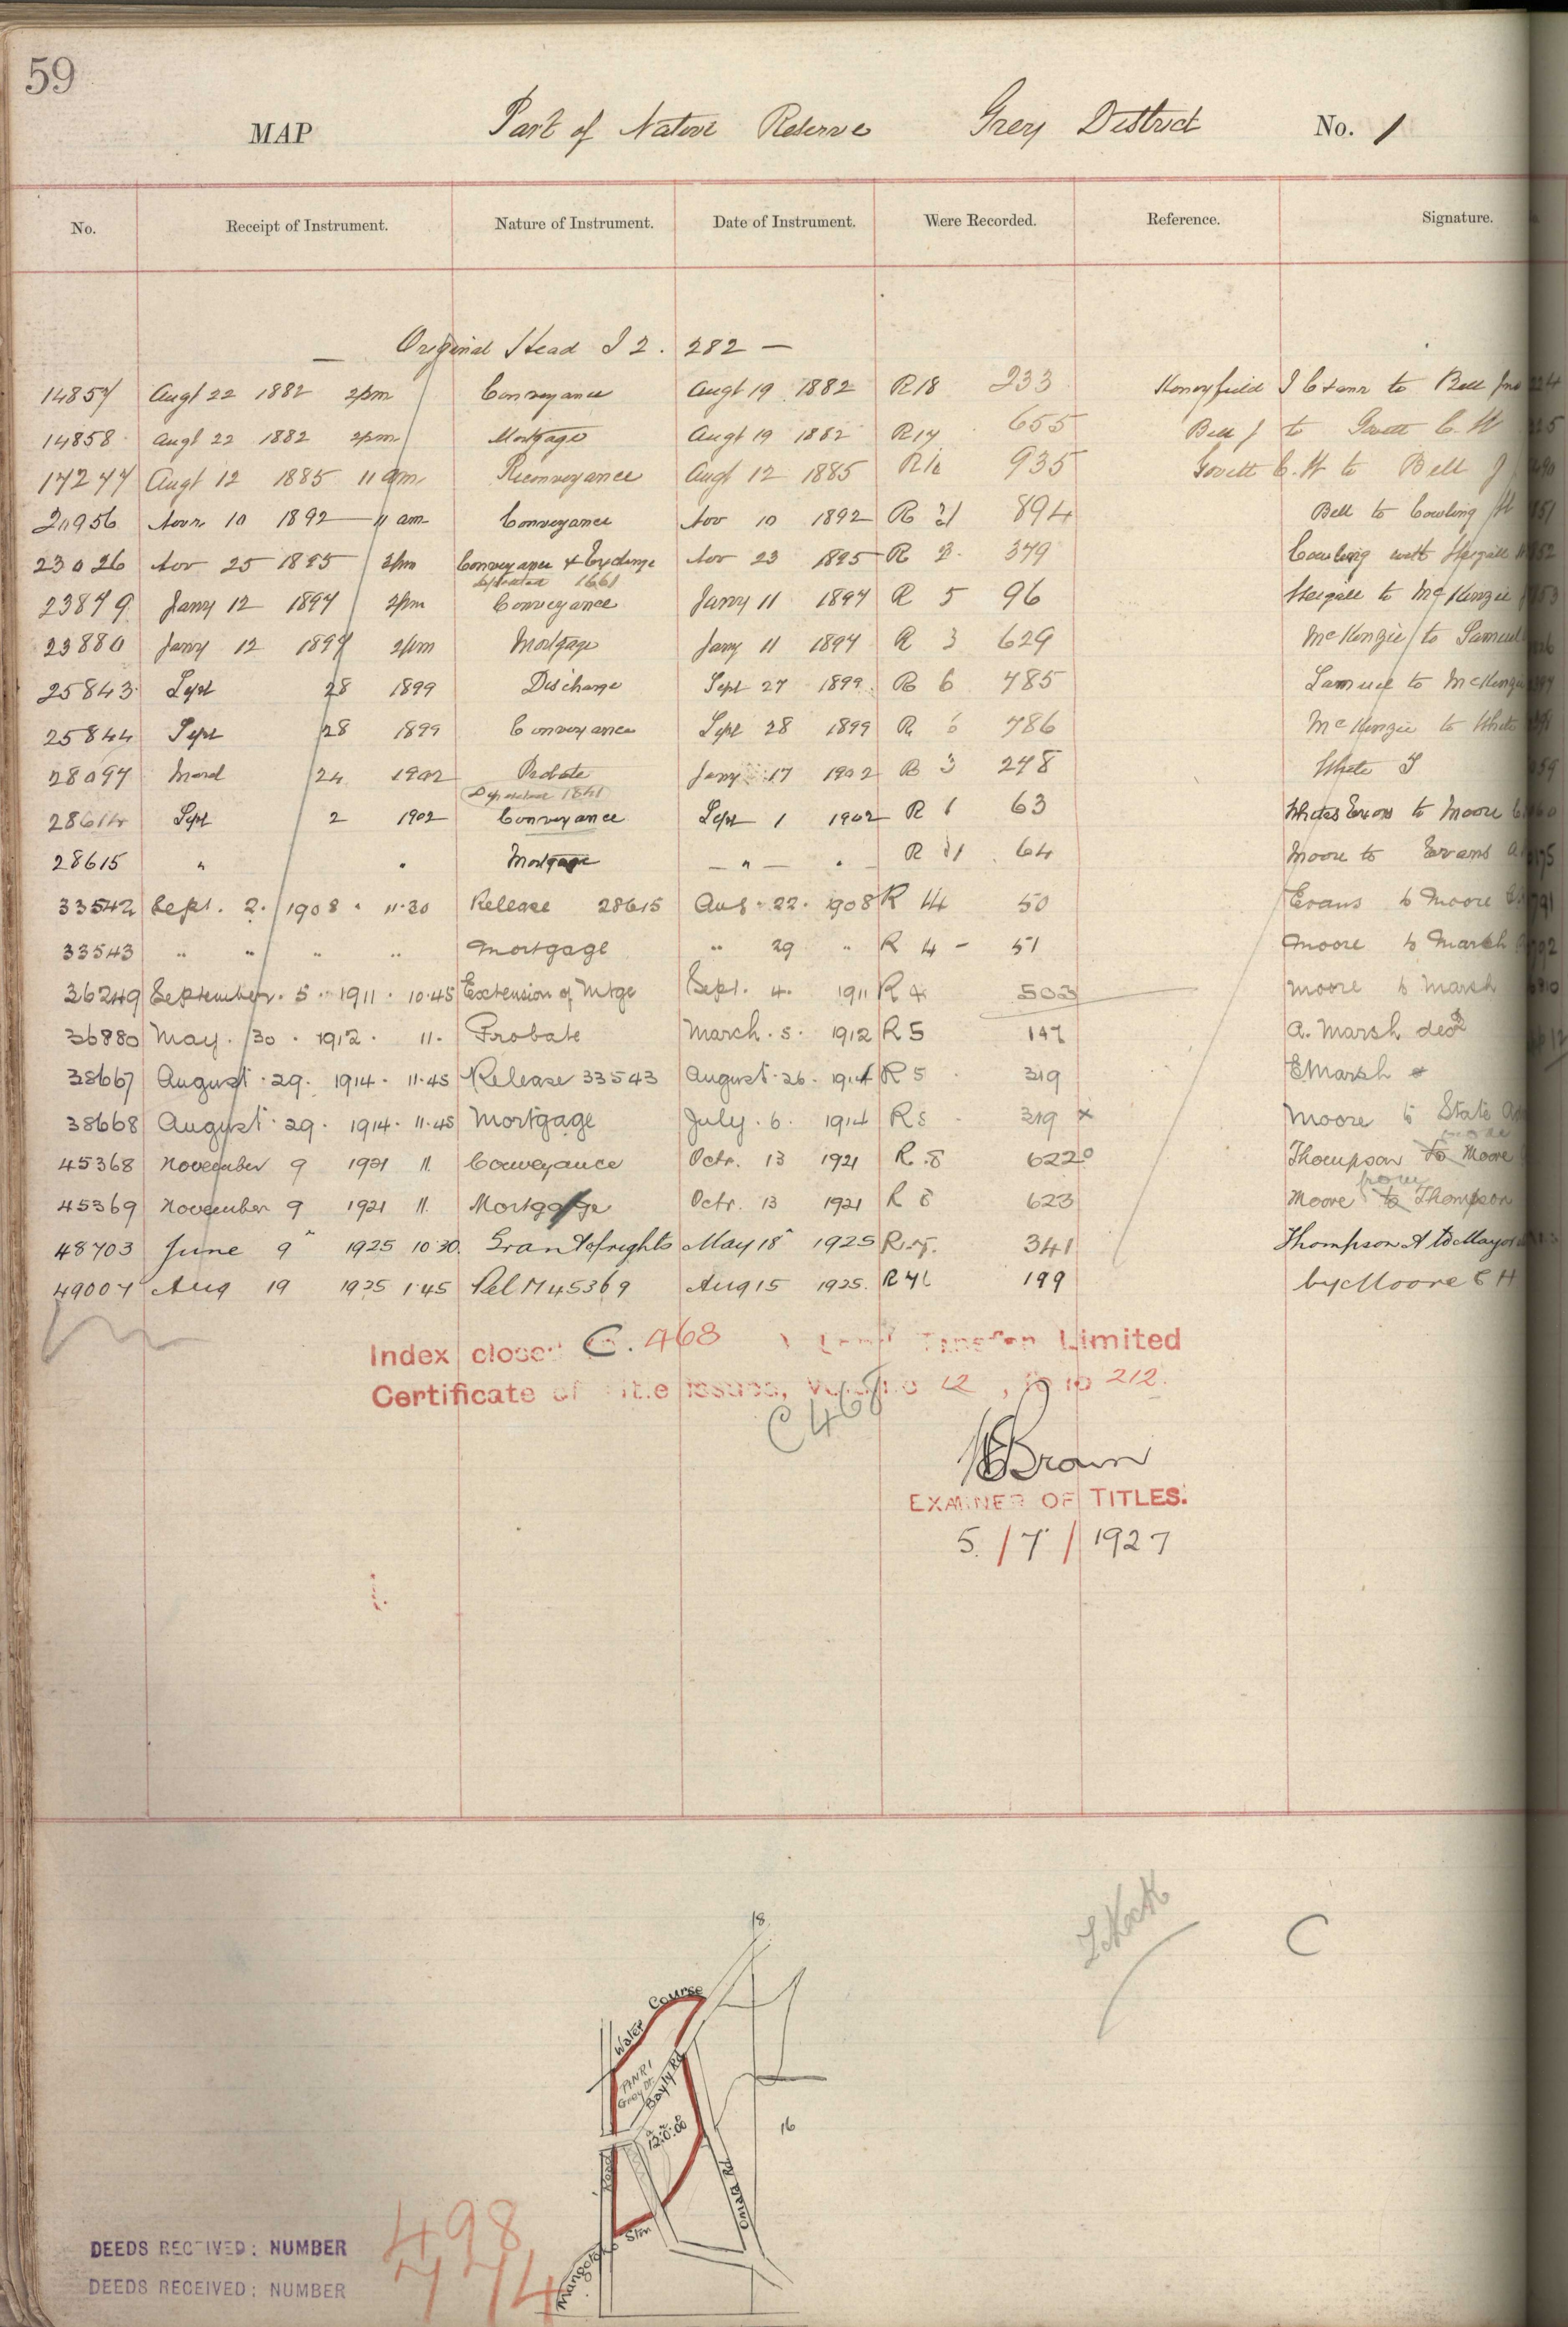 59
MAP Part of Native Reserve Grey District No. 1
No. Receipt of Instrument. Nature of Instrument. Date of Instrument. Were Recorded. Reference. Signature.
— Original Head I 2. 282 —
14857 Augt 22 1882 2pm Conveyance Augt 19 1882 R18 233 Honeyfield J & anr to Bell Jno
14858 Augt 22 1882 2pm Mortgage Augt 19 1882 R17 655 Bell J to Govett C. W
17277 Augt 12 1885 11 am Reconveyance Augt 12 1885 935 Govett C. W to Bell J
20956 Novr 10 1892 11 am Conveyance Nov 10 1892 R 21 894 Bell to Cowling
23026 Nov 25 1895 2pm Conveyance & Exchange Nov 23 1895 R 379 Cowling with
1661
23879 Jany 12 1897 2pm Conveyance Jany 11 1897 R 5 96 to McKenzie J
23880 Jany 12 1897 2pm Mortgage Jany 11 1897 R 3 629 McKenzie to Samuel
25843 Sept 28 1899 Discharge Sept 27 1899 R 6 785 Samuel to McKenzie
25844 Sept 28 1899 Conveyance Sept 28 1899 R 6 786 McKenzie to White
28097 March 24 1902 Probate Jany 17 1902 R 3 278 White J
28614 Sept 2 1902 Conveyance Sept 1 1902 R 1 63 Whites Exors to Moore
28615 " " Mortgage — " — R 64 Moore to Evans
33542 Sept. 2. 1908 . 11.30 Release 28615 Aug. 22. 1908 R 50 Evans to Moore
33543 " " " " Mortgage " 29 " R 4 - 51 Moore to Marsh
36249 September. 5. 1911. 10.45 Extension of Mtge Sept. 4. 1911 R 4 503 Moore to Marsh
36880 May. 30. 1912. 11. Probate March. 5. 1912 R5 147 A. Marsh decd
38667 August. 29. 1914. 11.45 Release 33543 August. 26. 1914 R 5 319 E Marsh
38668 August. 29. 1914. 11.45 Mortgage July. 6. 1914 R5 319 x Moore to State
45368 November 9 1921 11. Conveyance Octr. 13 1921 R. 8 622 Thompson to Moore
from
45369 November 9 1921 11. Mortgage Octr. 13 1921 R 8 623 Moore to Thompson
48703 June 9 1925 10.30. Grant of rights May 18 1925 341 Thompson A to Mayor
49007 Aug 19 1925 1.45 Rel M 45369 Aug 15 1925. 199 by Moore C H
Index closed C. 468 Land Transfer Limited
Certificate of Title issued, Volume 12, folio 212.
C 468
Brown
EXAMINER OF TITLES.
5 / 7 / 1927
C
18
Water Course
PNR1
Grey Dt.
Bayly Rd
12:0:00
16
Road
Omata Rd
Mangotuku Stm
498
DEEDS RECEIVED: NUMBER
774
DEEDS RECEIVED: NUMBER